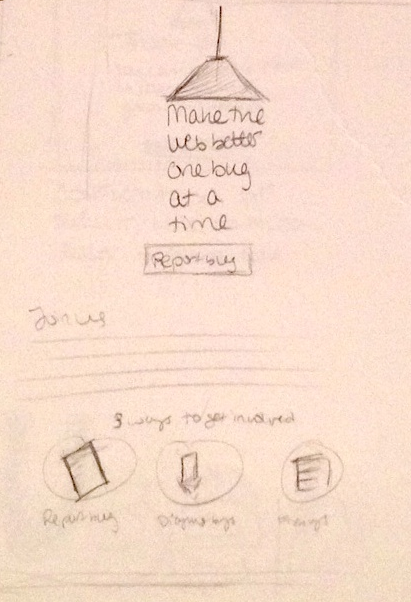 Make the
web better
one bug
at a
time
Report bug
Join us
3 ways to get involved
Report bug
Diagnose bugs